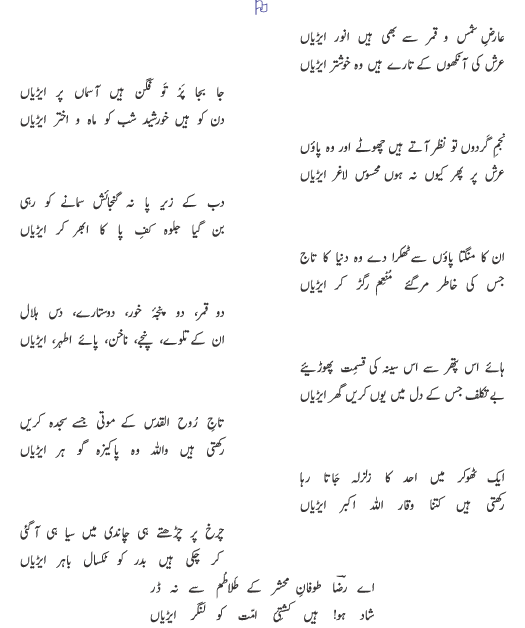 عارضِ شمس و قمر سے بھی ہیں انور ایڑیاں
عرش کی آنکھوں کے تارے ہیں وہ خوشتر ایڑیاں
جا بجا پَرْ تَو فگن ہیں آسماں پر ایڑیاں
دن کو ہیں خورشید شب کو ماہ و اختر ایڑیاں
نجمِ گردوں تو نظر آتے ہیں چھوٹے اور وہ پاؤں
عرش پر پھر کیوں نہ ہوں محسوس لاغر ایڑیاں
دب کے زیرِ پا نہ گنجائش سمانے کو رہی
بن گیا جلوہ کفِ پا کا ابھر کر ایڑیاں
ان کا منگتا پاؤں سے ٹھکرا دے وہ دنیا کا تاج
جس کی خاطر مر گئے مُنْعِم رگڑ کر ایڑیاں
دو قمر، دو پنجۂ خور، دو ستارے، دس ہلال
ان کے تلوے، پنجے، ناخن، پائے اطہر، ایڑیاں
ہائے اس پتھر سے اس سینہ کی قسمت پھوڑیئے
بے تکلف جس کے دل میں یوں کریں گھر ایڑیاں
تاجِ رُوح القدس کے موتی جسے سجدہ کریں
رکھتی ہیں واللہ وہ پاکیزہ گوہر ایڑیاں
ایک ٹھوکر میں احد کا زلزلہ جَاتا رہا
رکھتی ہیں کتنا وقار اللہ اکبر ایڑیاں
چرخ پر چڑھتے ہی چاندی میں سیاہی آگئی
کر چکی ہیں بدر کو ٹکسال باہر ایڑیاں
اے رضاؔ طوفانِ محشر کے طَلاطُم سے نہ ڈر
شاد ہو! ہیں کشتیِٔ امّت کو لنگر ایڑیاں